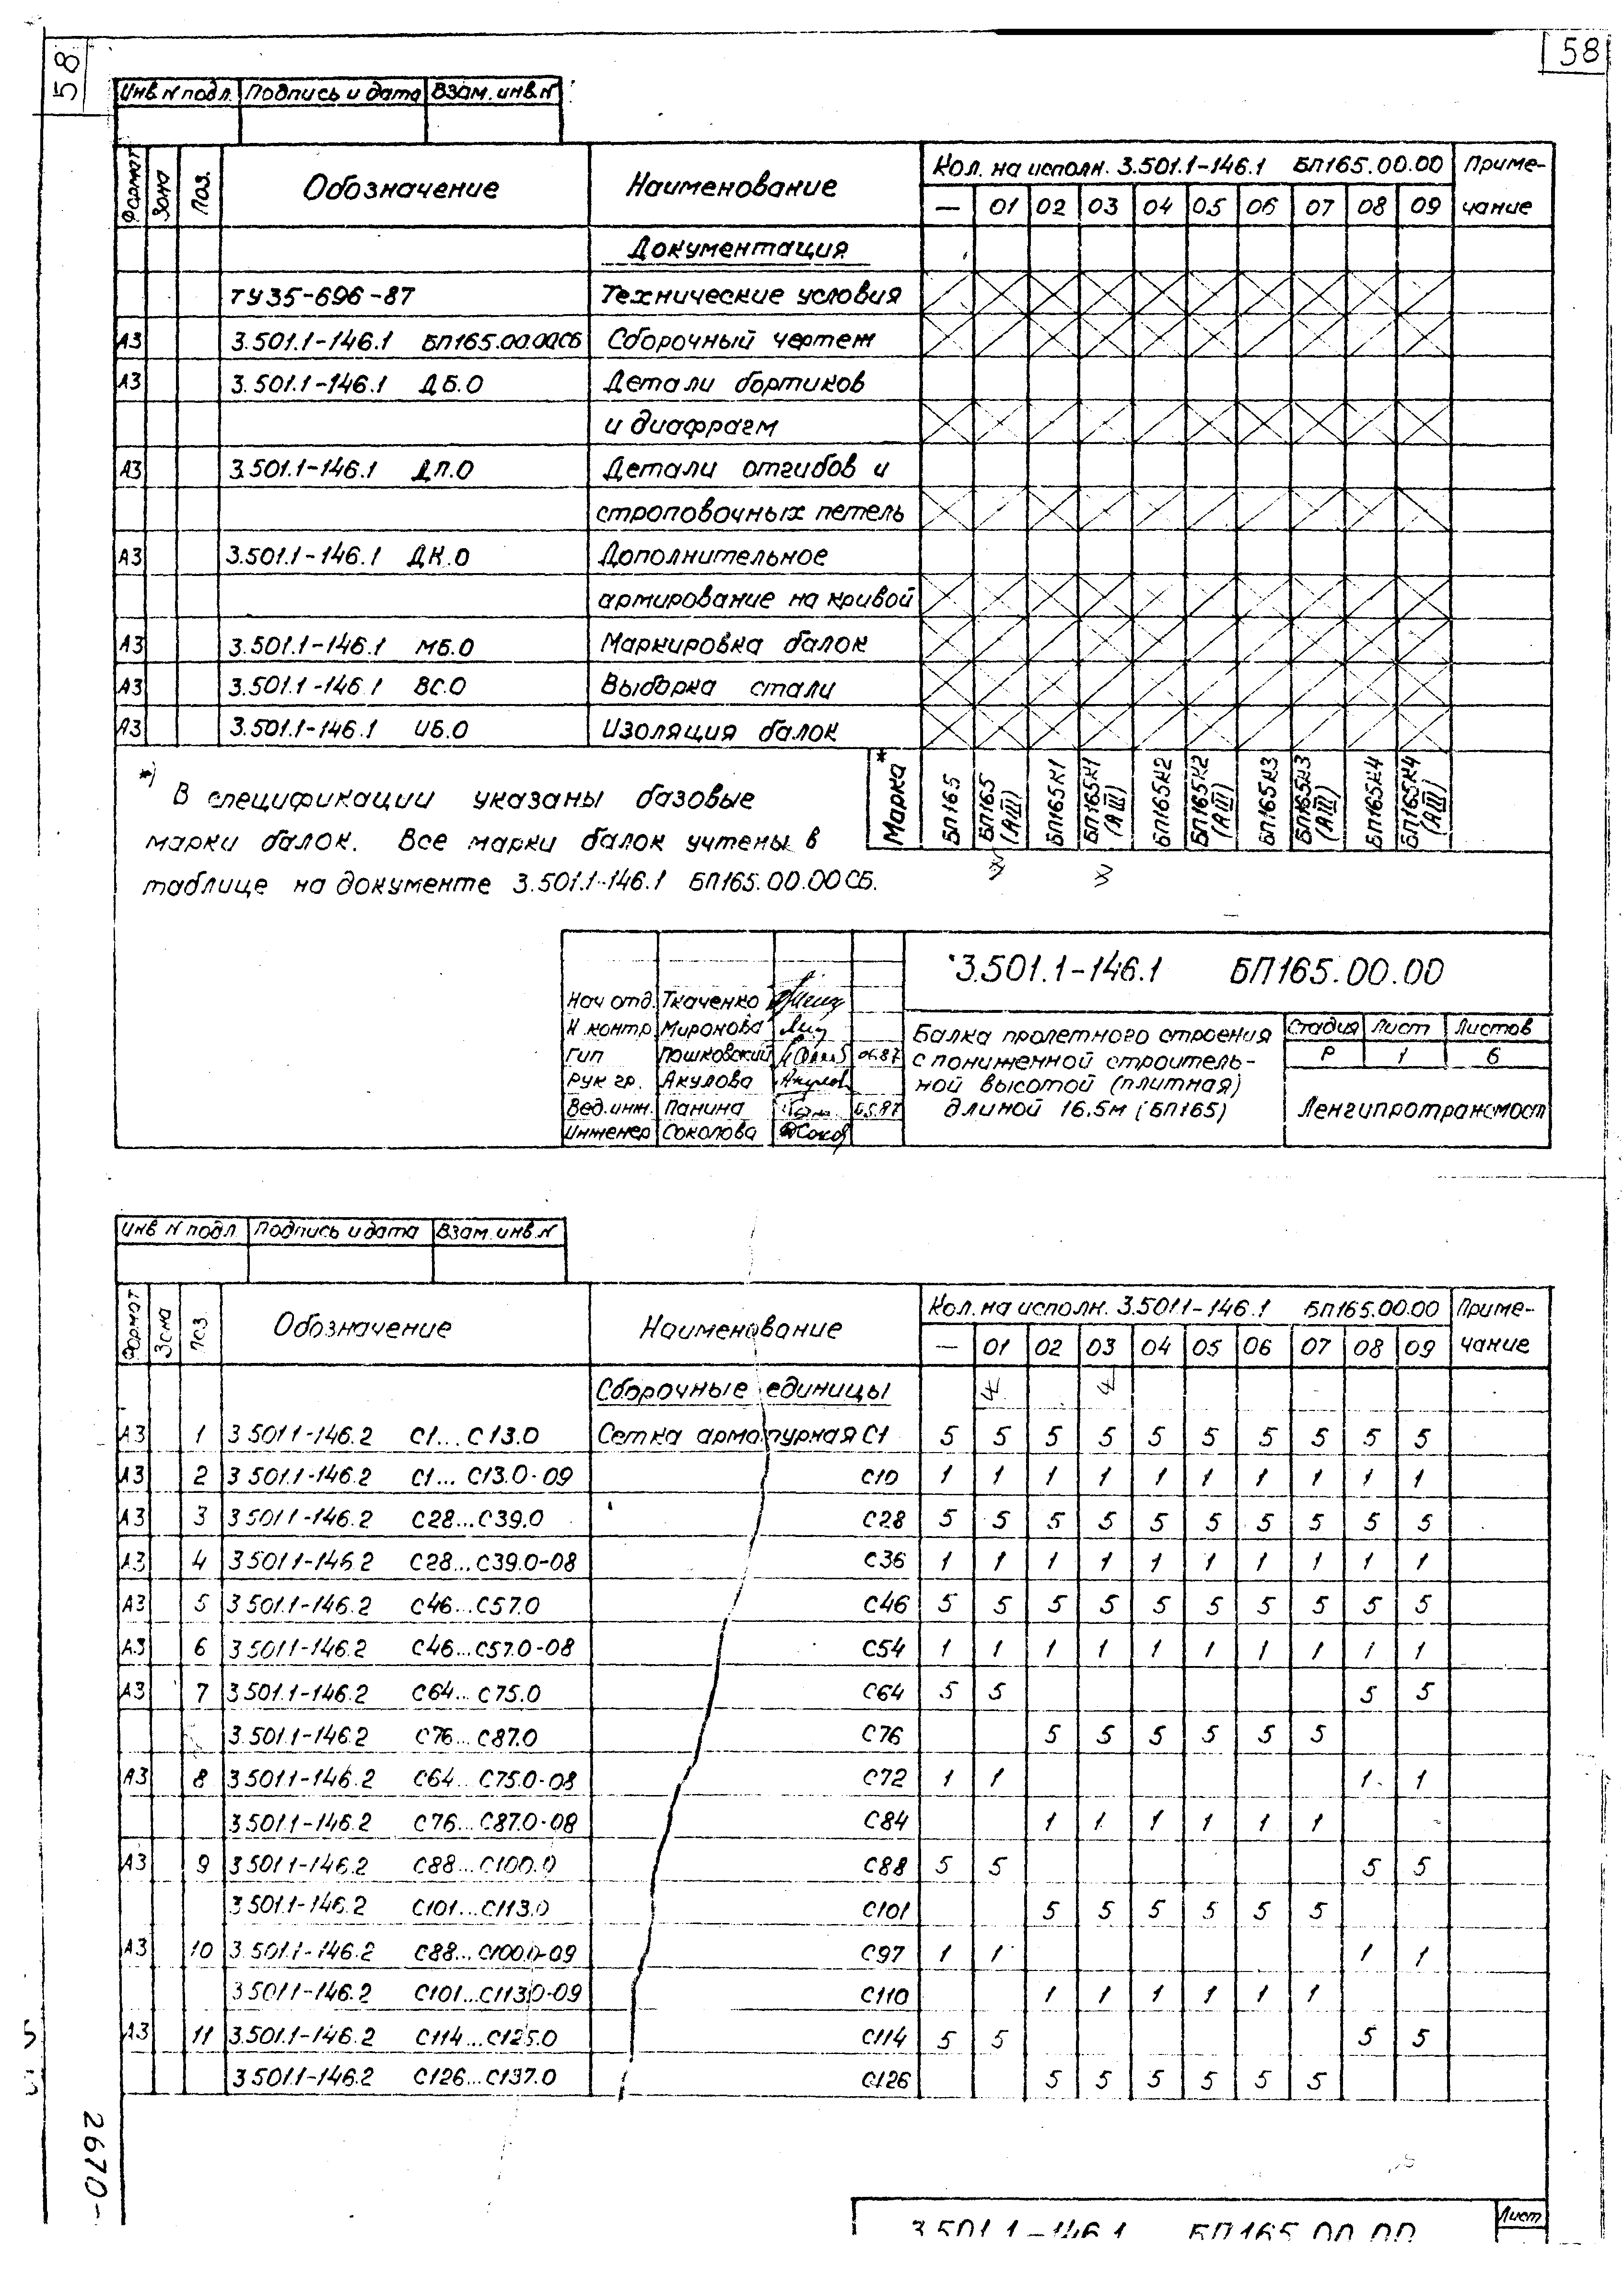 58
58
Инв N подл. Подпись и дата Взам. инв. N
Формат Зона Поз. Обозначение Наименование Кол. на исполн. 3.501.1-146.1 БП165.00.00 Приме-
— 01 02 03 04 05 06 07 08 09 чание
Документация
ТУ35-696-87 Технические условия
А3 3.501.1-146.1 БП165.00.00СБ Сборочный чертеж
А3 3.501.1-146.1 ДБ.0 Детали бортиков
и диафрагм
А3 3.501.1-146.1 ДП.0 Детали отгибов и
строповочных петель
А3 3.501.1-146.1 ДК.0 Дополнительное
армирование на кривой
А3 3.501.1-146.1 МБ.0 Маркировка балок
А3 3.501.1-146.1 ВС.0 Выборка стали
А3 3.501.1-146.1 ИБ.0 Изоляция балок
Марка* БП165 БП165 (АIII) БП165К1 БП165К1 (АIII) БП165К2 БП165К2 (АIII) БП165К3 БП165К3 (АIII) БП165К4 БП165К4 (АIII)
*) В спецификации указаны базовые
марки балок. Все марки балок учтены в
таблице на документе 3.501.1-146.1 БП165.00.00СБ.
3.501.1-146.1 БП165.00.00
Нач отд. Ткаченко
Н.контр Миронова
Гип Пашковский 06.87
Рук гр. Акулова
Вед.инж. Панина 05.87
Инженер Соколова
Балка пролетного строения
с пониженной строитель-
ной высотой (плитная)
длиной 16.5м (БП165)
Стадия Лист Листов
Р 1 6
Ленгипротрансмост
Инв N подл. Подпись и дата Взам. инв. N
Формат Зона Поз. Обозначение Наименование Кол. на исполн. 3.501.1-146.1 БП165.00.00 Приме-
— 01 02 03 04 05 06 07 08 09 чание
Сборочные единицы
А3 1 3.501.1-146.2 С1...С13.0 Сетка арматурная С1 5 5 5 5 5 5 5 5 5 5
А3 2 3.501.1-146.2 С1...С13.0-09 С10 1 1 1 1 1 1 1 1 1 1
А3 3 3.501.1-146.2 С28...С39.0 С28 5 5 5 5 5 5 5 5 5 5
А3 4 3.501.1-146.2 С28...С39.0-08 С36 1 1 1 1 1 1 1 1 1 1
А3 5 3.501.1-146.2 С46...С57.0 С46 5 5 5 5 5 5 5 5 5 5
А3 6 3.501.1-146.2 С46...С57.0-08 С54 1 1 1 1 1 1 1 1 1 1
А3 7 3.501.1-146.2 С64...С75.0 С64 5 5 5 5
3.501.1-146.2 С76...С87.0 С76 5 5 5 5 5 5
А3 8 3.501.1-146.2 С64...С75.0-08 С72 1 1 1 1
3.501.1-146.2 С76...С87.0-08 С84 1 1 1 1 1 1
А3 9 3.501.1-146.2 С88...С100.0 С88 5 5 5 5
3.501.1-146.2 С101...С113.0 С101 5 5 5 5 5 5
А3 10 3.501.1-146.2 С88...С100.0-09 С97 1 1 1 1
3.501.1-146.2 С101...С113.0-09 С110 1 1 1 1 1 1
А3 11 3.501.1-146.2 С114...С125.0 С114 5 5 5 5
3.501.1-146.2 С126...С137.0 С126 5 5 5 5 5 5
2670-
3.501.1-146.1 БП165.00.00 Лист